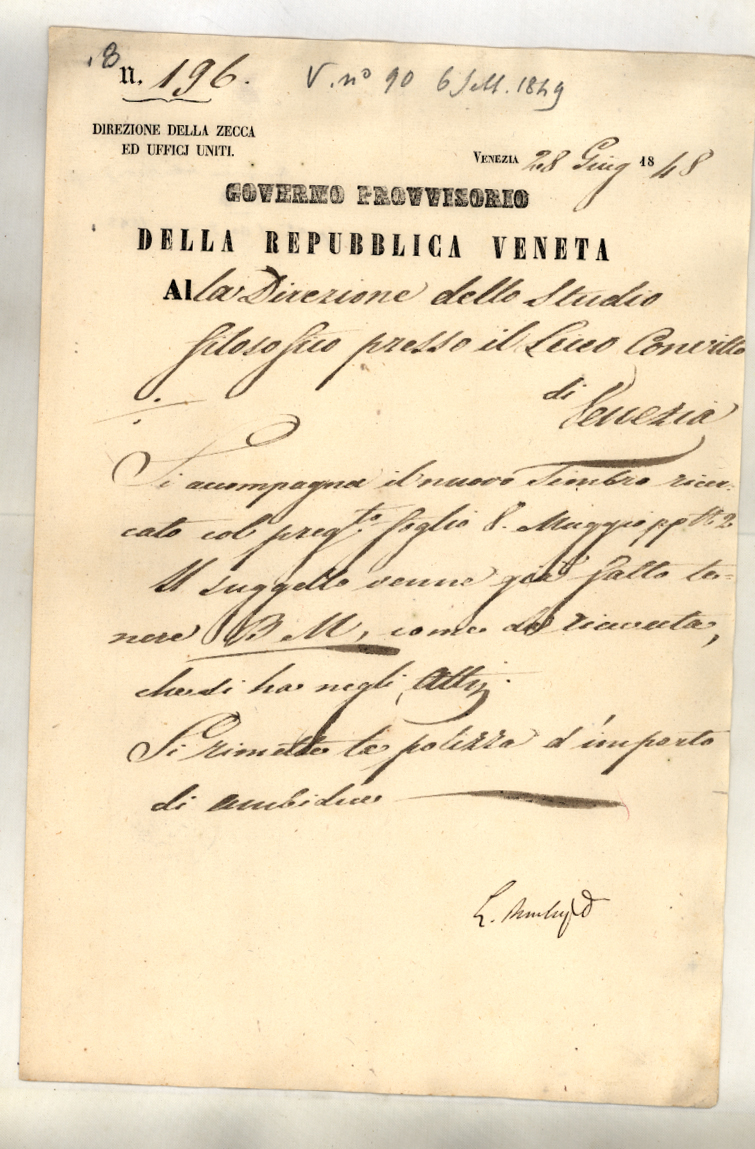 n. 196.
V. n° 90 6 Sett. 1849
DIREZIONE DELLA ZECCA
ED UFFICJ UNITI.
VENEZIA 28 Giug 1848
GOVERNO PROVVISORIO
DELLA REPUBBLICA VENETA
Alla Direzione dello Studio
filosofico presso il Liceo Convitto
di
Venezia
Si accompagna il nuovo Timbro ricer-
cato col preg.to foglio 8. Maggio pp N 2
Il suggello venne già fatto te-
nere B M, come da ricevuta,
che si ha negli Atti.
Si rimette la polizza d'importo
di ambidue